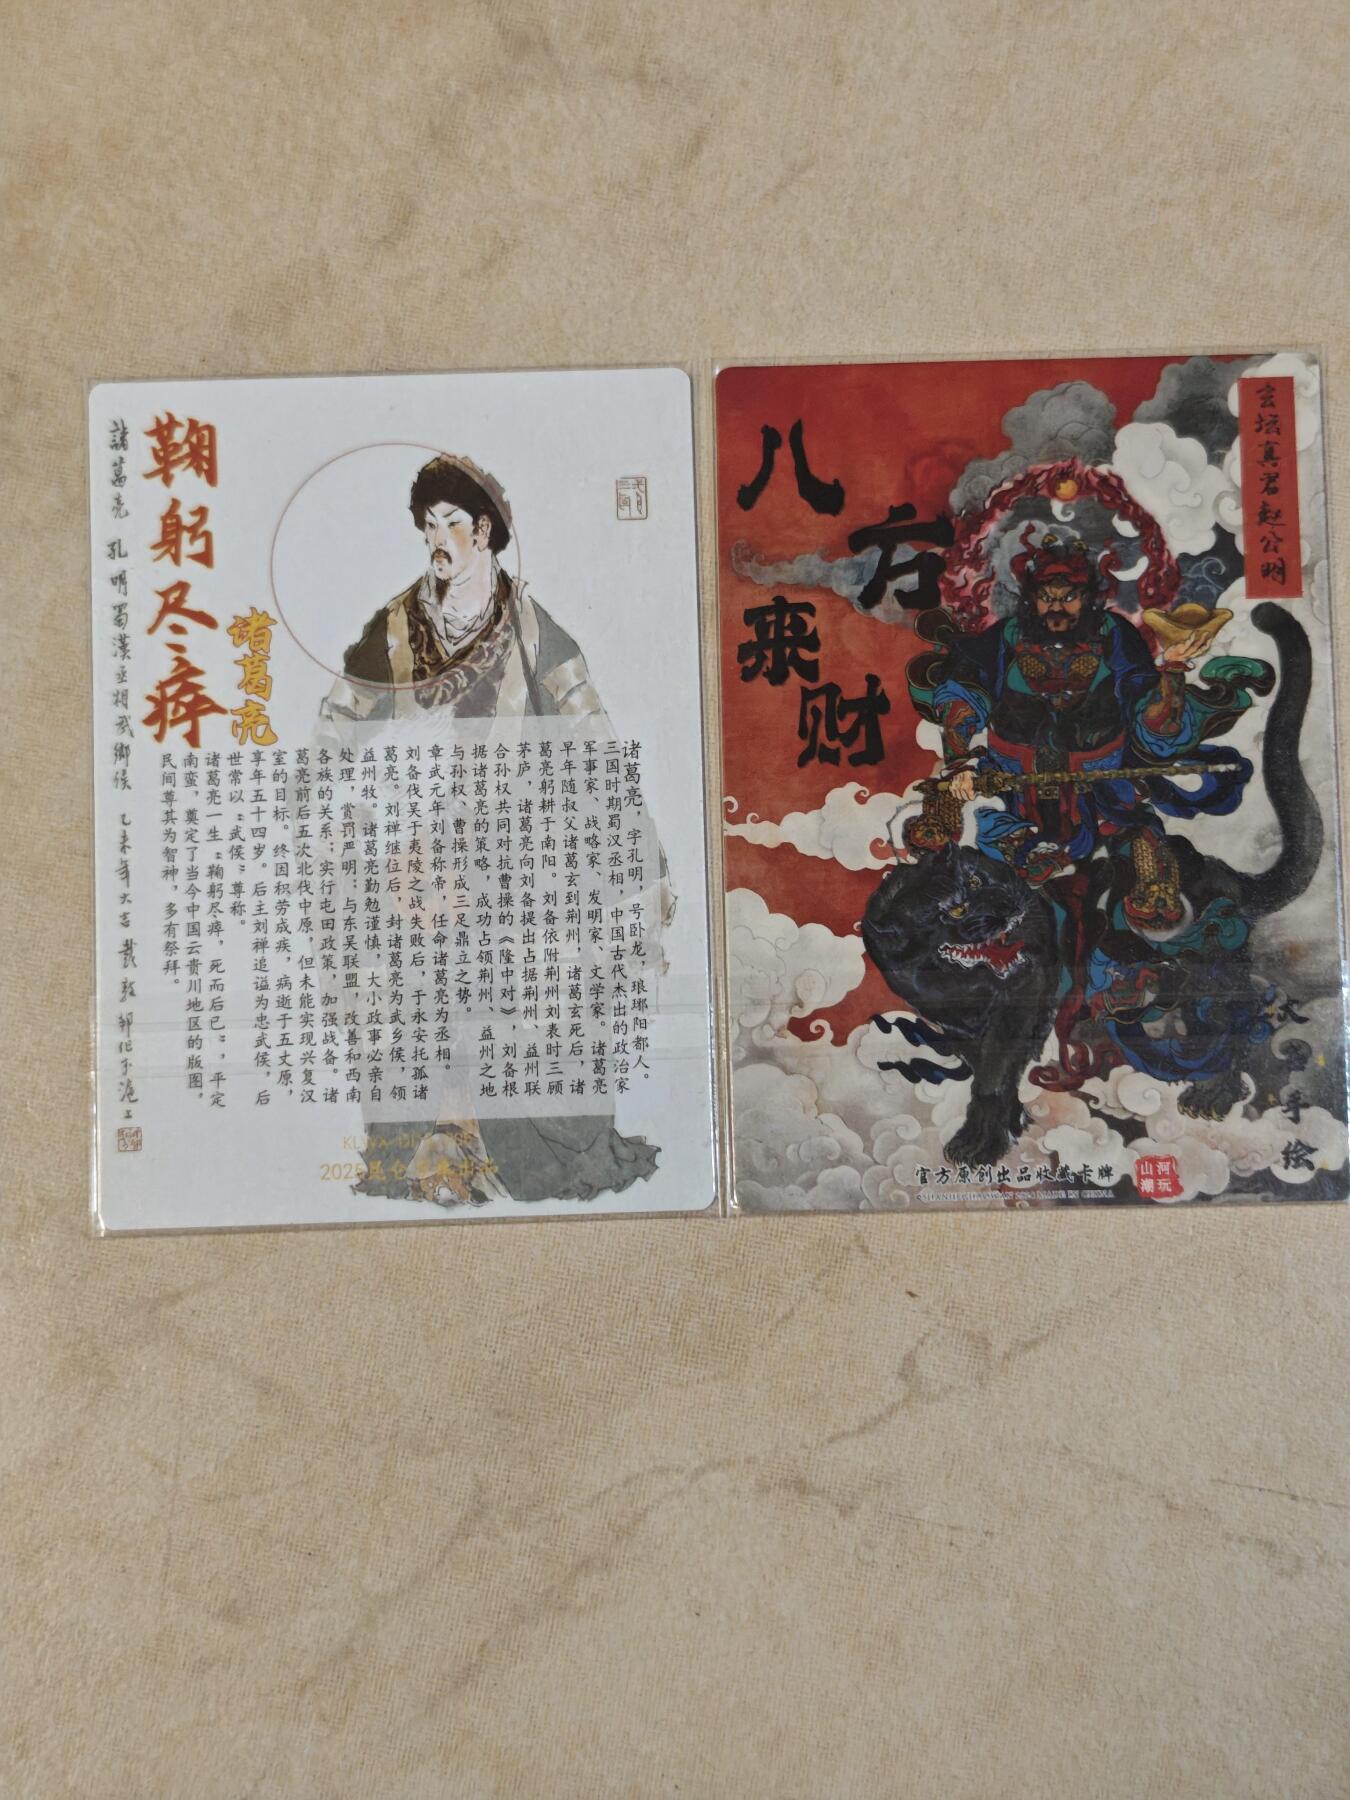 鞠躬尽瘁
诸葛亮
諸葛亮 孔明蜀漢丞相武鄉侯 乙未年大吉戴敦邦作于滬上
诸葛亮,字孔明,号卧龙,琅琊阳都人。
三国时期蜀汉丞相,中国古代杰出的政治家
军事家、战略家、发明家、文学家。诸葛亮
早年随叔父诸葛玄到荆州,诸葛玄死后,诸
葛亮躬耕于南阳。刘备依附荆州刘表时三顾
茅庐,诸葛亮向刘备提出占据荆州、益州联
合孙权共同对抗曹操的《隆中对》,刘备根
据诸葛亮的策略,成功占领荆州、益州之地
与孙权、曹操形成三足鼎立之势。
章武元年刘备称帝,任命诸葛亮为丞相。
刘备伐吴于夷陵之战失败后,于永安托孤诸
葛亮。刘禅继位后,封诸葛亮为武乡侯,领
益州牧。诸葛亮勤勉谨慎,大小政事必亲自
处理,赏罚严明;与东吴联盟,改善和西南
各族的关系;实行屯田政策,加强战备。诸
葛亮前后五次北伐中原,但未能实现兴复汉
室的目标。终因积劳成疾,病逝于五丈原,
享年五十四岁。后主刘禅追谥为忠武侯,后
世常以“武侯”尊称。
诸葛亮一生“鞠躬尽瘁,死而后已”,平定
南蛮,奠定了当今中国云贵川地区的版图,
民间尊其为智神,多有祭拜。
八方来财
玄坛真君赵公明
手绘
官方原创出品收藏卡牌
山河潮玩